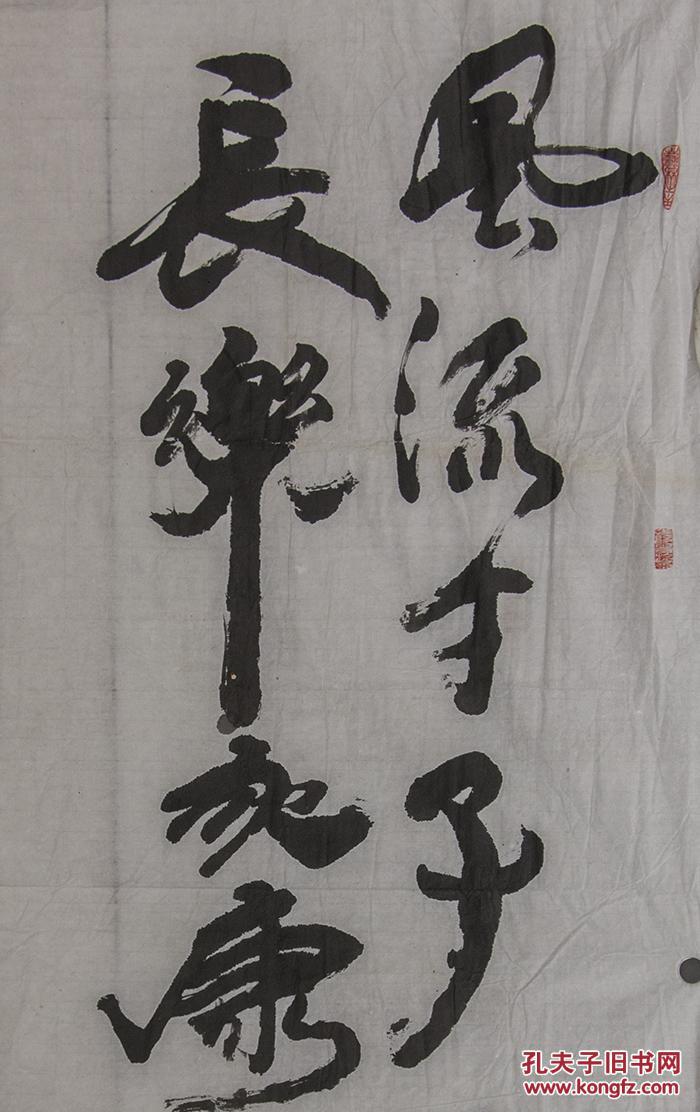 風流才子
長樂康
孔夫子旧书网
www.kongfz.com